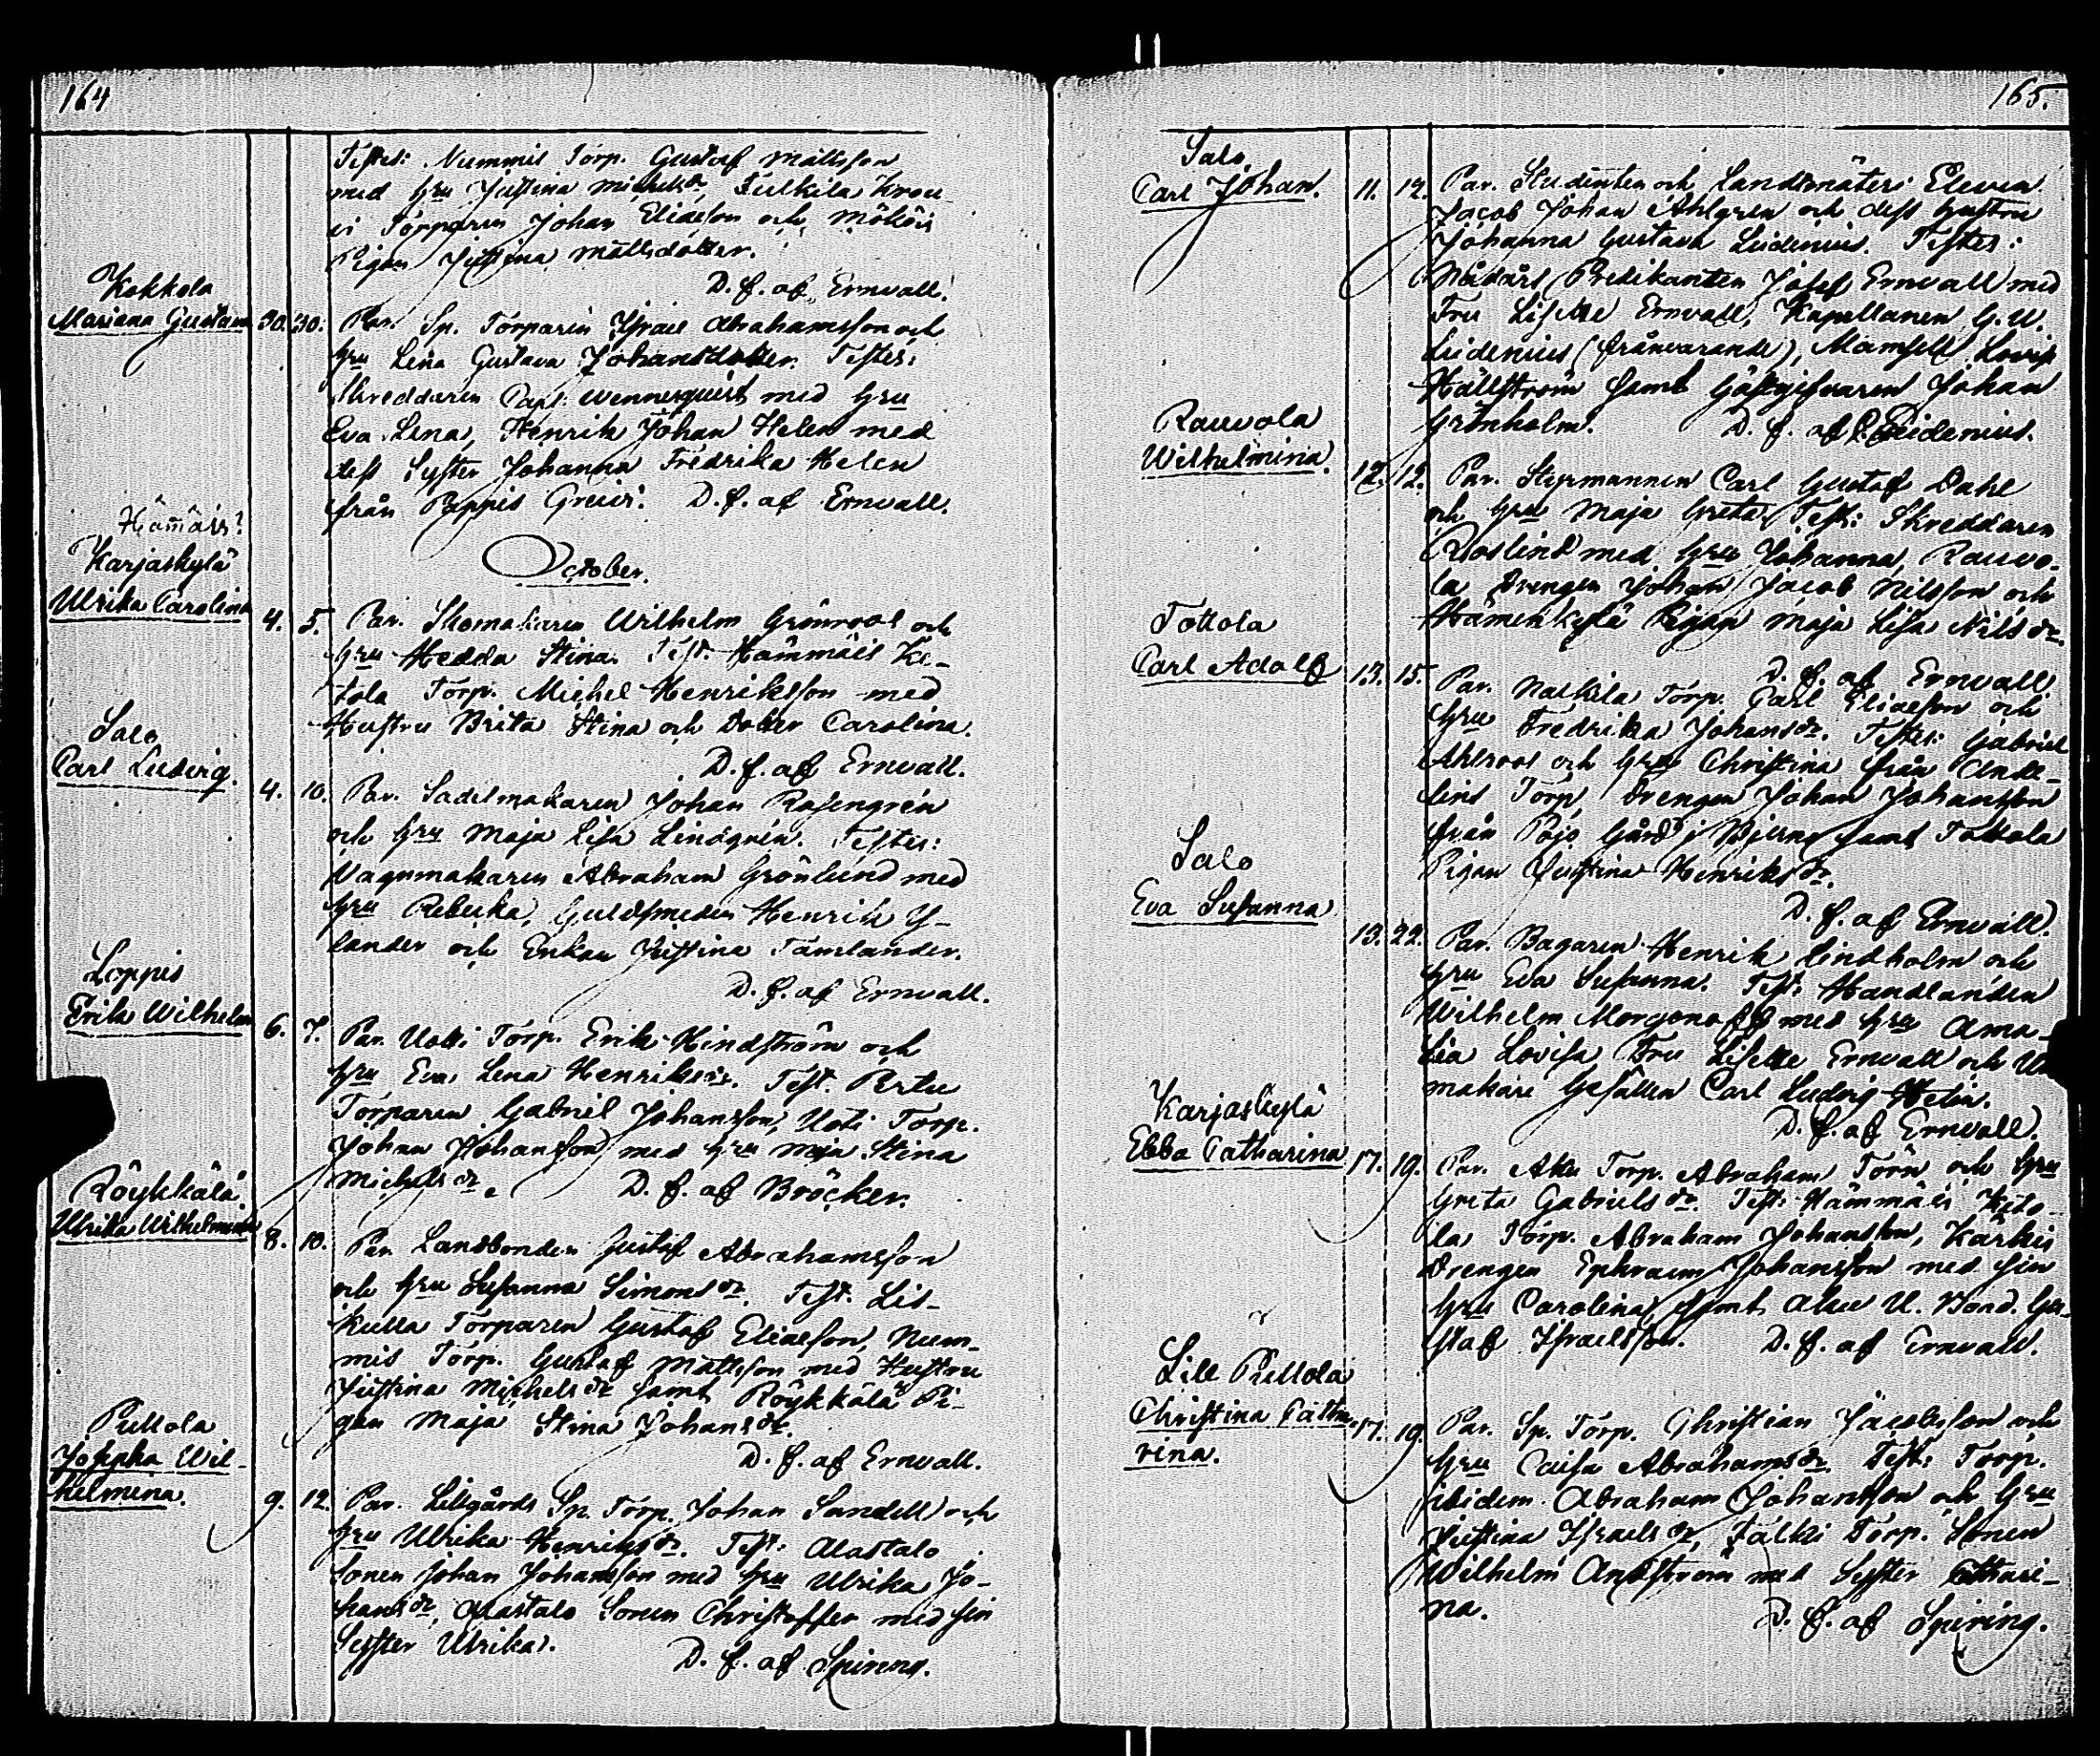 164
Testes: Nummis Torp. Gustaf Mattsson
med hru Justina Michelsdr, Tulkila
Torparen Johan Eliasson och
Pigan Justina Mattsdotter.
D. f. af Ernvall.
Kokkola
Mariana Gustava 30. 30. Par. Sp. Torparen Israel Abrahamsson och
hru Lena Gustava Johansdotter. Testes:
Skreddaren Carl Wennerquist med hru
Eva Lena, Henrik Johan Helen med
dess Syster Johanna Fredrika Helen
från Pappis D. f. af Ernvall.
October.
Hämäis?
Karjaskylä
Ulrika Carolina 4. 5. Par. Skomakaren Wilhelm Grönroos och
hru Hedda Stina. Test. Hämmäis Ke-
tola Torp. Michel Henriksson med
Hustru Brita Stina och Dotter Carolina.
D. f. af Ernvall.
Salo
Carl Ludvig. 4. 10. Par. Sadelmakaren Johan Rosengrén
och hru Maja Lisa Lindqvin. Testes:
Vagnmakaren Abraham Grönlund med
hru Rebecka, Guldsmeden Henrik Y-
lander och Enkan Justina Tamlander.
D. f. af Ernvall.
Loppis
Erik Wilhelm 6. 7. Par. Uotti Torp. Erik Hindström och
hru Eva Lena Henriksdr. Test. Pertu
Torparen Gabriel Johansson, Uoti Torp.
Johan Johansson med hru Maja Stina
Michelsdr. D. f. af Bröcker.
Röykkälä
Ulrika Wilhelmina 8. 10. Par. Landbonden Gustaf Abrahamsson
och hru Susanna Simonsdr. Test. Lis-
kulla Torparen Gustaf Eliasson, Num-
mis Torp. Gustaf Mattsson med Hustru
Justina Michelsdr samt Röykkälä Pi-
gan Maja Stina Johansdr.
D. f. af Ernvall.
Pullola
Josepha Wil-
helmina. 9. 12. Par. Lillgårds Sp. Torp. Johan Sandell och
hru Ulrika Henriksdr. Test: Alastalo
Sonen Johan Johansson med hru Ulrika Jo-
hansdr, Alastalo Sonen Christoffer med sin
Syster Ulrika. D. f. af Spiring.
165.
Salo
Carl Johan. 11. 14. Par. Studenten och Landtmäteri Eleven
Jacob Johan Ahlgren och dess hustru
Johanna Gustava Lidenius. Testes:
Nådårs Predikanten Josef Ernvall med
Fru Lisette Ernvall, Kapellanen G. W.
Lidenius (frånvarande), Mamsell Lovisa
Hällström samt Gästgifvaren Johan
Grönholm. D. f. af Lidenius.
Rauvola
Wilhelmina. 12. 12. Par. Styrmannen Carl Gustaf Dahl
och hru Maja Greta. Test: Skreddaren
Roslind med hru Johanna, Rauvo-
la Drengen Johan Jacob Nilsson och
Hämenkylä Pigan Maja Lisa Nilsdr.
D. f. af Ernvall.
Tottola
Carl Adolf 13. 15. Par. Naikila Torp. Carl Eliasson och
hru Fredrika Johansdr. Testes: Gabriel
Ahlroos och hru Christina från Ande-
lins Torp, Drengen Johan Johansson
från Pojo Gård i Bjerno samt Tottola
Pigan Justina Henriksdr.
D. f. af Ernvall.
Salo
Eva Susanna 13. 22. Par. Bagaren Henrik Lindholm och
hru Eva Susanna. Test: Handlanden
Wilhelm Morgonoff med hru Ama-
lia Lovisa, Fru Lisette Ernvall och
makare Gesällen Carl Ludvig Helin.
D. f. af Ernvall.
Karjaskylä
Ebba Catharina 17. 19. Par. Aku Torp. Abraham Törn och hru
Greta Gabrielsdr. Test: Hämmäis Keto-
la Torp. Abraham Johansson, Kärkis
Drengen Ephraim Johansson med sin
hru Carolina, samt Aku U. Bond. Gu-
staf Israelsson. D. f. af Ernvall.
Lill Pullola
Christina Catha-
rina. 17. 19. Par. Sp. Torp. Christian Jacobsson och
hru Caisa Abrahamsdr. Test: Torp.
ibidem Abraham Johansson och hru
Justina Israelsdr, Talki Torp. Sonen
Wilhelm Andström med Syster Cathari-
na. D. f. af Spiring.